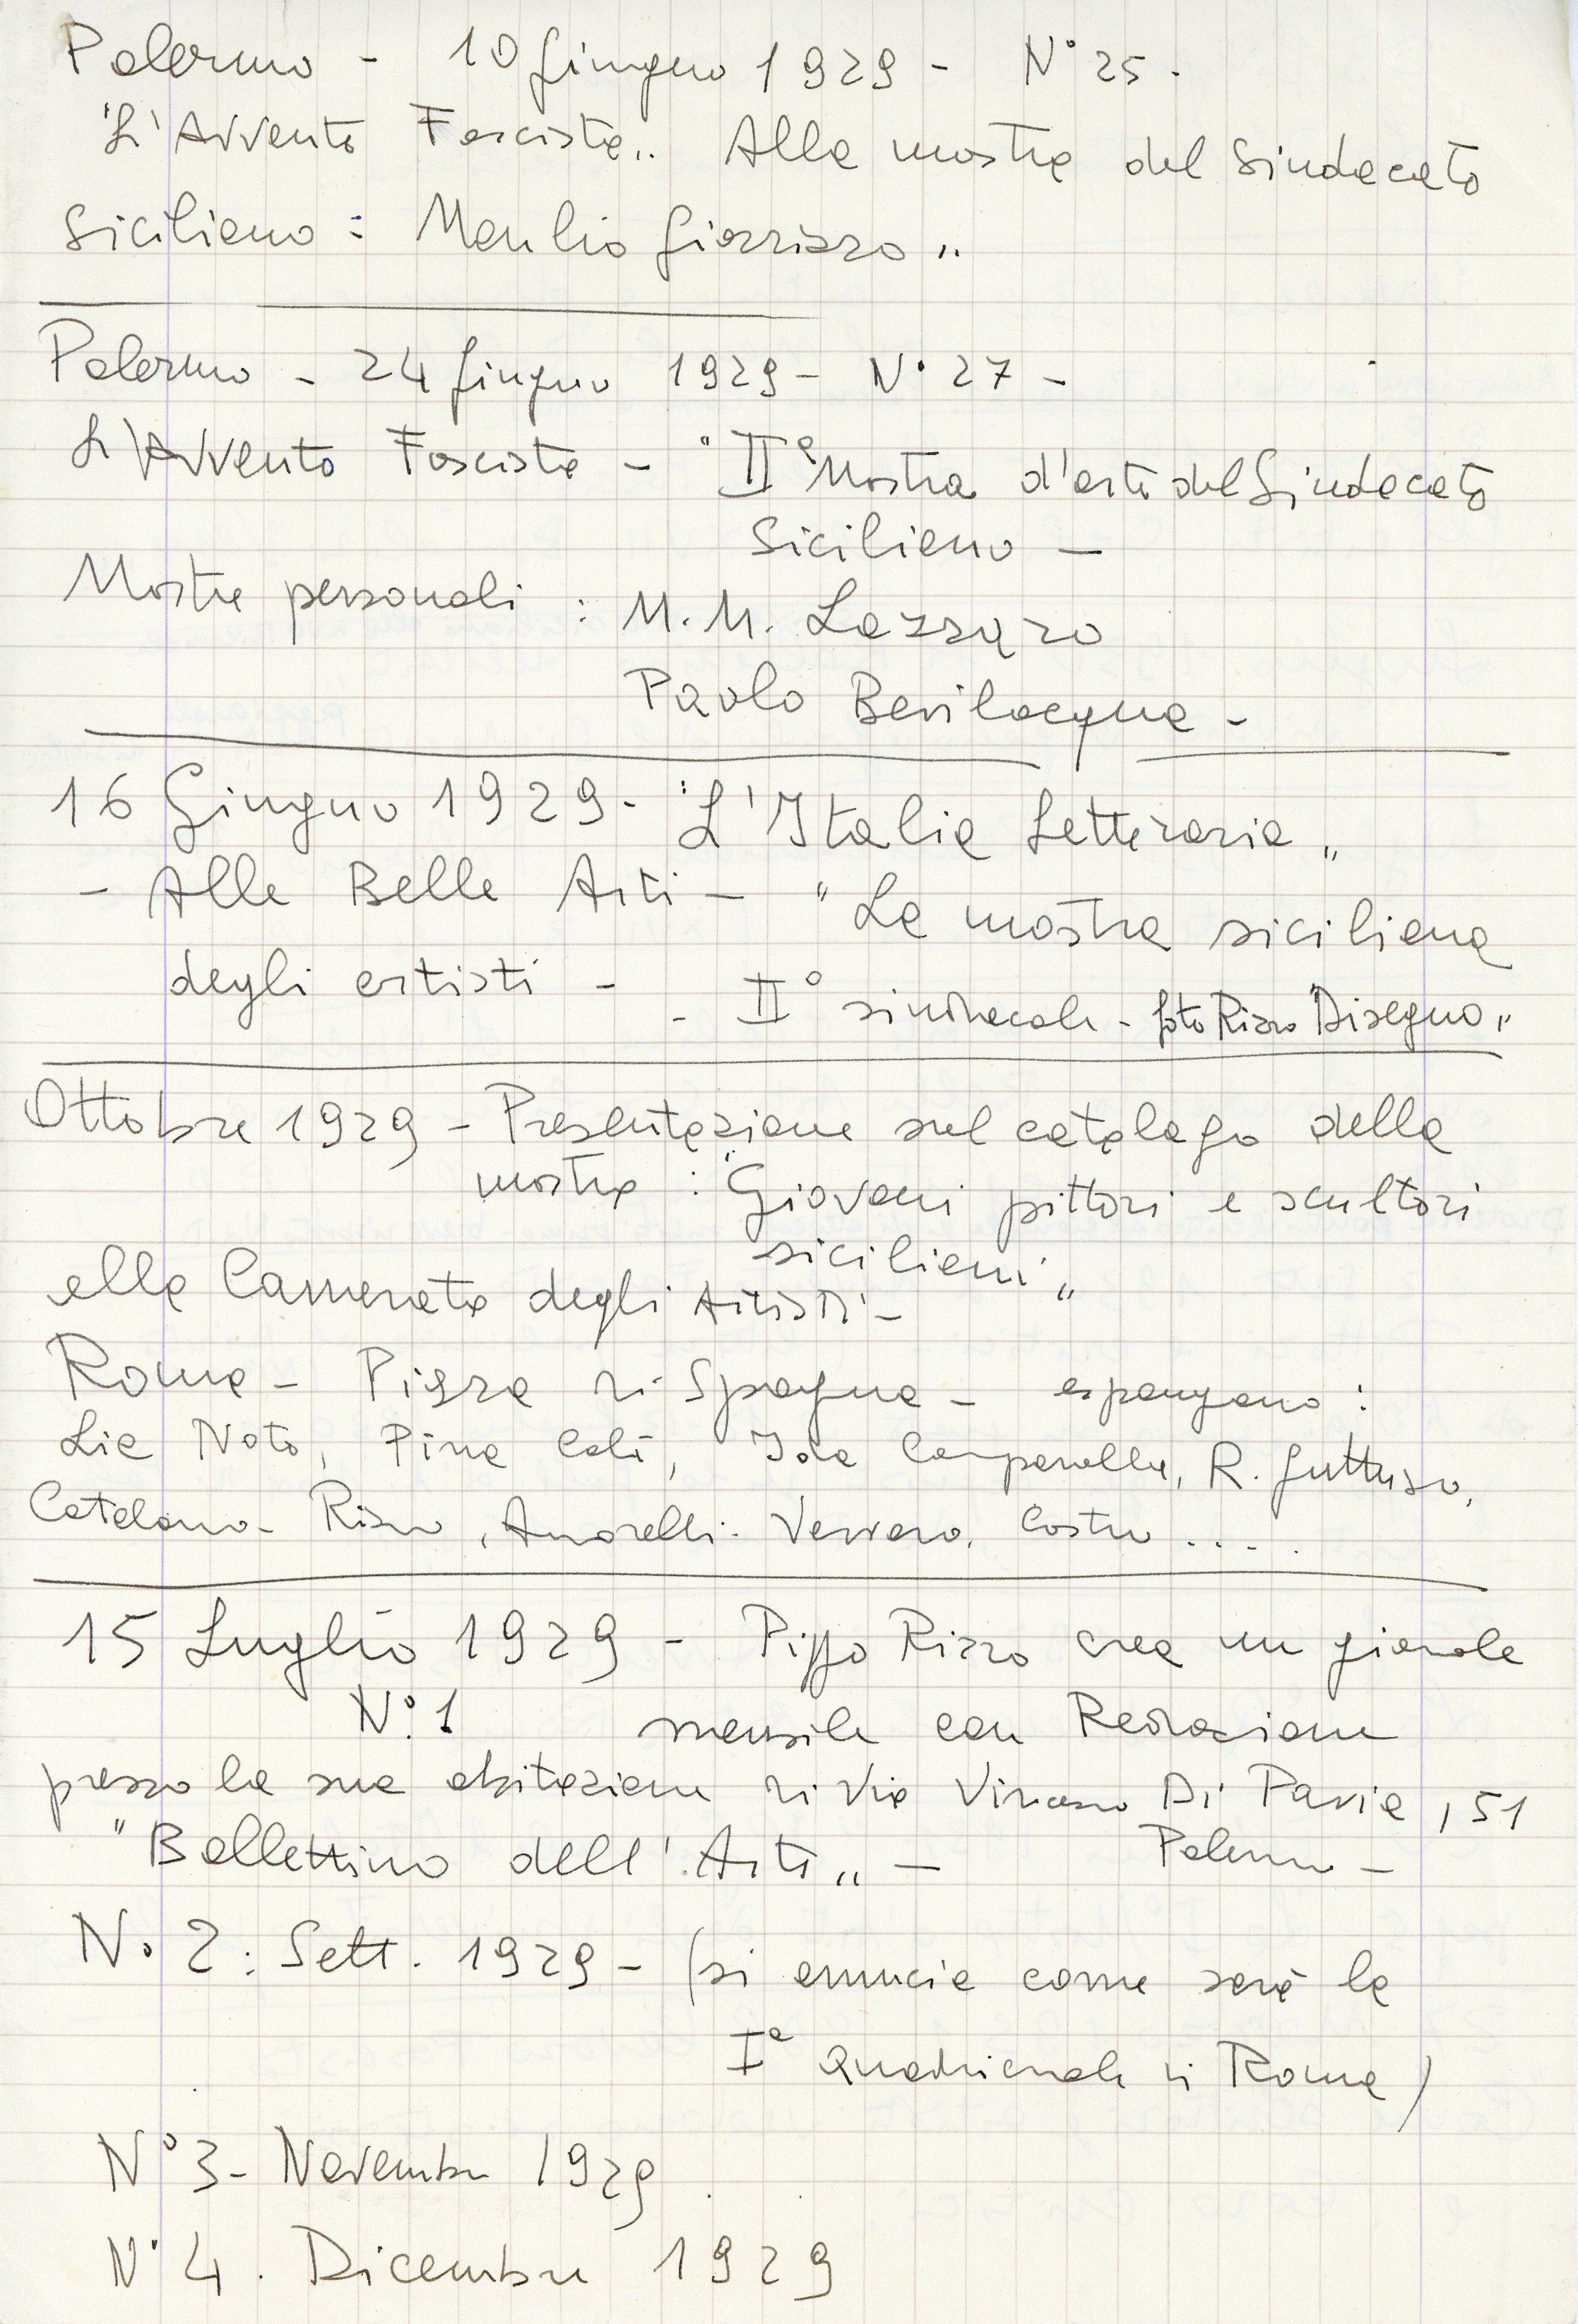 Palermo - 10 Giugno 1929 - N° 25 -
"L'Avvento Fascista„ Alla mostra del Sindacato
Siciliano : Manlio Giarrizzo „
Palermo - 24 Giugno 1929 - N° 27 -
L'Avvento Fascista - "IIª Mostra d'arte del Sindacato
Siciliano -
Mostre personali : M.M. Lazzaro
Paolo Bevilacqua -
16 Giugno 1929 - "L'Italia Letteraria „
- Alle Belle Arti - "La mostra siciliana
degli artisti -
- II° sindacale - foto Rizzo "Disegno„
Ottobre 1929 - Presentazione sul catalogo della
mostra : "Giovani pittori e scultori
siciliani „
alla Camerata degli Artisti -
Roma - Piazza di Spagna - espongono :
Lia Noto, Pina Calì, Ida Campanella, R. Guttuso,
Catalano - Rizzo, Amorelli - Vervaro, Costa ....
15 Luglio 1929 - Pippo Rizzo crea un giornale
N° 1 mensile con Redazione
presso la sua abitazione di Via Vincenzo Di Pavia, 51
"Bollettino dell'Arte„ - Palermo -
N. 2 : Sett. 1929 - (si annuncia come sarà la
Iª Quadriennale di Roma)
N° 3 - Novembre 1929
N° 4. Dicembre 1929